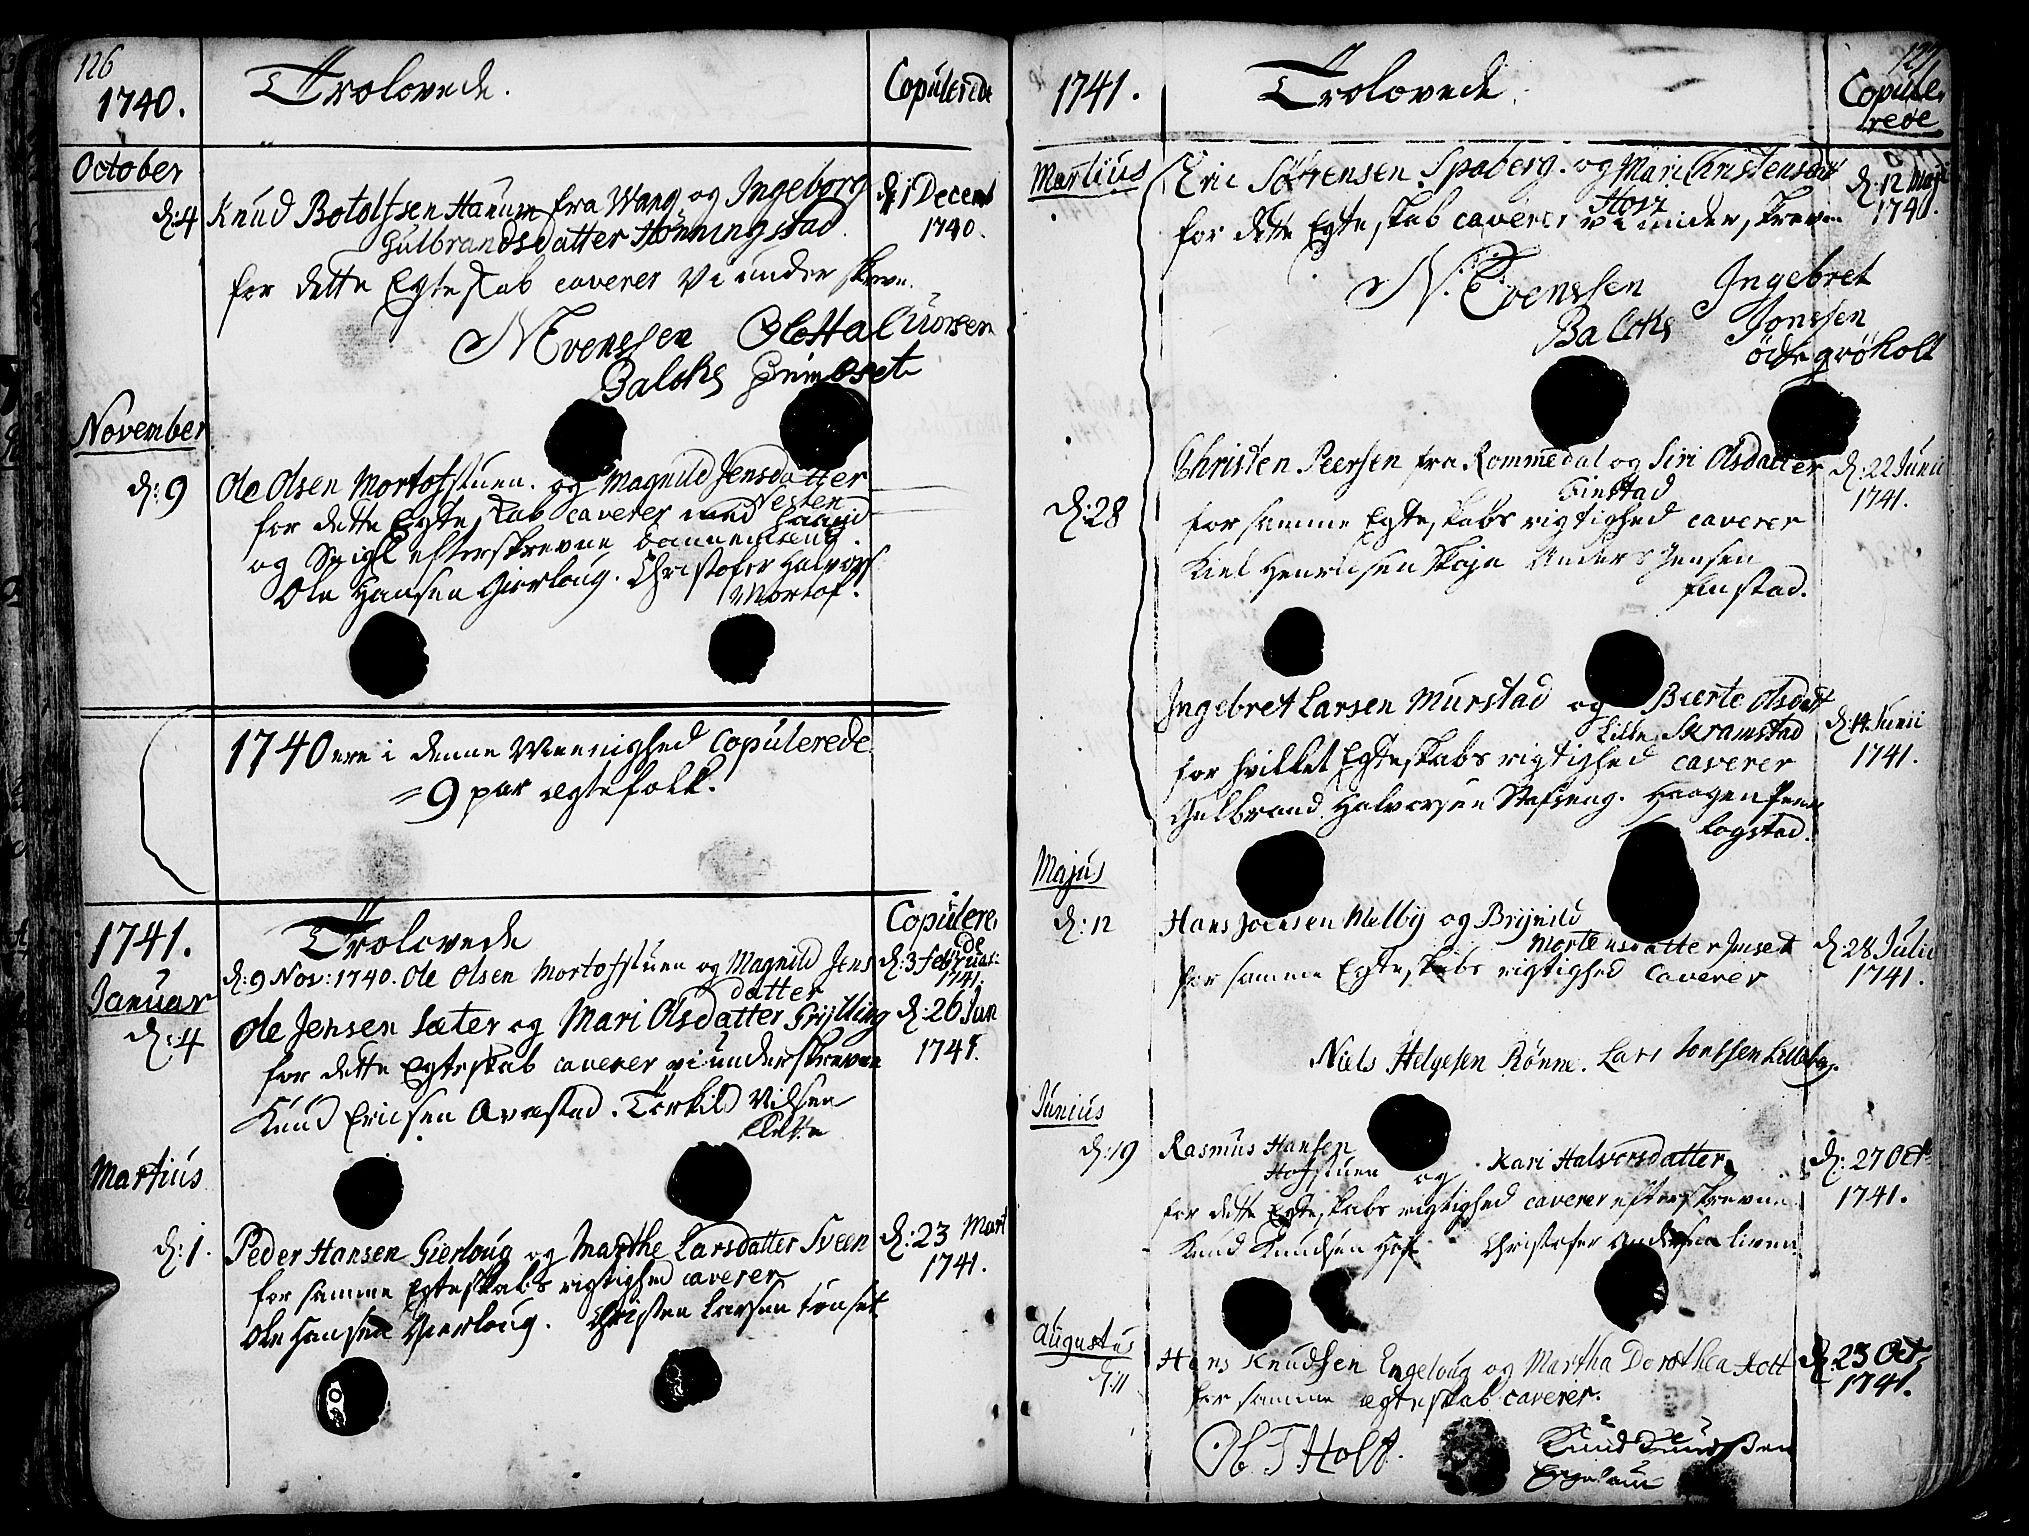 126
1740.
Trolovede.
Copulerede
October
d: 4 Knud Botolfsen Hanum fra Wang og Ingeborg
Gulbrandsdatter Hønningstad.
d: 1 Decemb
1740.
for dette Egteskab caverer Vi underskrevne.
N Evenssen
Balchs
November
d: 9 Ole Olsen Mortofstuen. og Magnild Jensdatter
Nesten
for dette Egteskab caverer med Haand
og Seigl efterskrevne Dannemænd.
Ole Hansen Gierloug. Christofer Halvors
Mortof.
1740 ere i denne Meenighed Copulerede
= 9 par ægtefolk.
1741.
Trolovede
Copulere
de
d: 9 Nov: 1740. Ole Olsen Mortofstuen og Magnild Jens
datter
d: 3 Februar:
1741.
Januar
d: 4 Ole Jensen Sæter og Mari Olsdatter Grylling
d: 26 Jun
1741.
for dette Egteskab caverer vi underskrevne
Knud Ericsen Avestad. Torkild Nilsen
Klette
Martius
d: 1. Peder Hansen Gierloug og Marthe Larsdatter Sveen
d: 23 Mart
1741.
for samme Egteskabs rigtighed caverer
Ole Hansen Gierloug. Christen Larsen Tønset.
127
1741.
Trolovede.
Copule
rede
Martius
Eric Sørensen Spaberg. og Mari Christensdat
Hovi
d: 12 Maji
1741.
for dette Egteskab caverer vi underskrevne
N. Evenssen
Balchs
Ingebret
Jonssen
ødegrøholt
d: 28
Christen Peersen fra Rommedal og Siri Olsdatter
Finstad
d: 22 Junii
1741.
for samme Egteskabs rigtighed caverer
Kiel Henricsen Skøjn Anders Jensen
Finstad.
Ingebret Larsen Murstad og Bierte Olsdatt
Lille Skramstad
d: 14 Junii
1741.
for hvilket Egteskabs rigtighed caverer
Gulbrand Halvorsen Stafseng. Haagen Peers
Logstad.
Majus
d: 12 Hans Joensen Melby og Brynild
Mortensdatter Imset
d: 28 Julii
1741.
for samme Egteskabs rigtighed caverer
Niels Helgesen Rønne. Lars Jonssen Lilleberg.
Junius
d: 19 Rasmus Hansen
Hofstuen og Kari Halvorsdatter
d: 27 Oct
1741.
for dette Egteskabs rigtighed caverer efterskrevne
Knud Knudsen Hof Christofer Andersen Liven
Augustus
d: 11
Hans Knudsen Engeloug og Martha Dorothea Holt
d: 23 Oct.
1741.
for samme ægteskab caverer.
Ol. T Holt.
Knud Knudsen
Engelaun